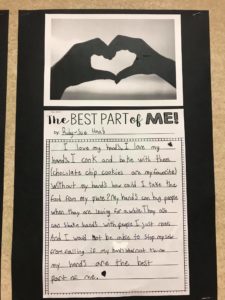 The BEST PART of ME!
By:
I love my hands. I love my
hands. I cook and bake with them.
(Chocolate chip cookies are my favorite)
Without my hands how could I take the
food from my plate? My hands can help people
when they are
can shake hands with people I just met.
And I would not be able to stop myself
from falling if my
my hands are the best
part of me.